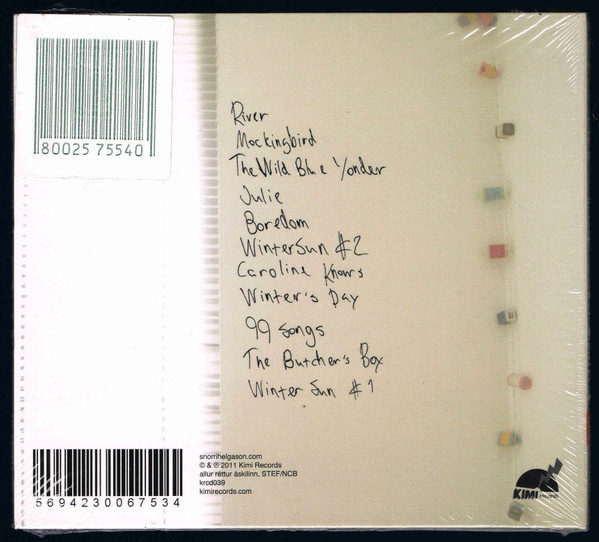 80025 75540
River
Mockingbird
The Wild Blue Yonder
Julie
Boredom
WinterSun #2
Caroline Knows
Winter's Day
99 Songs
The Butcher's Box
Winter Sun #1
5694230067534
snorrihelgason.com
© & ℗ 2011 Kimi Records
allur réttur áskilinn, STEF/NCB
krcd039
kimirecords.com
KIMI RECORDS